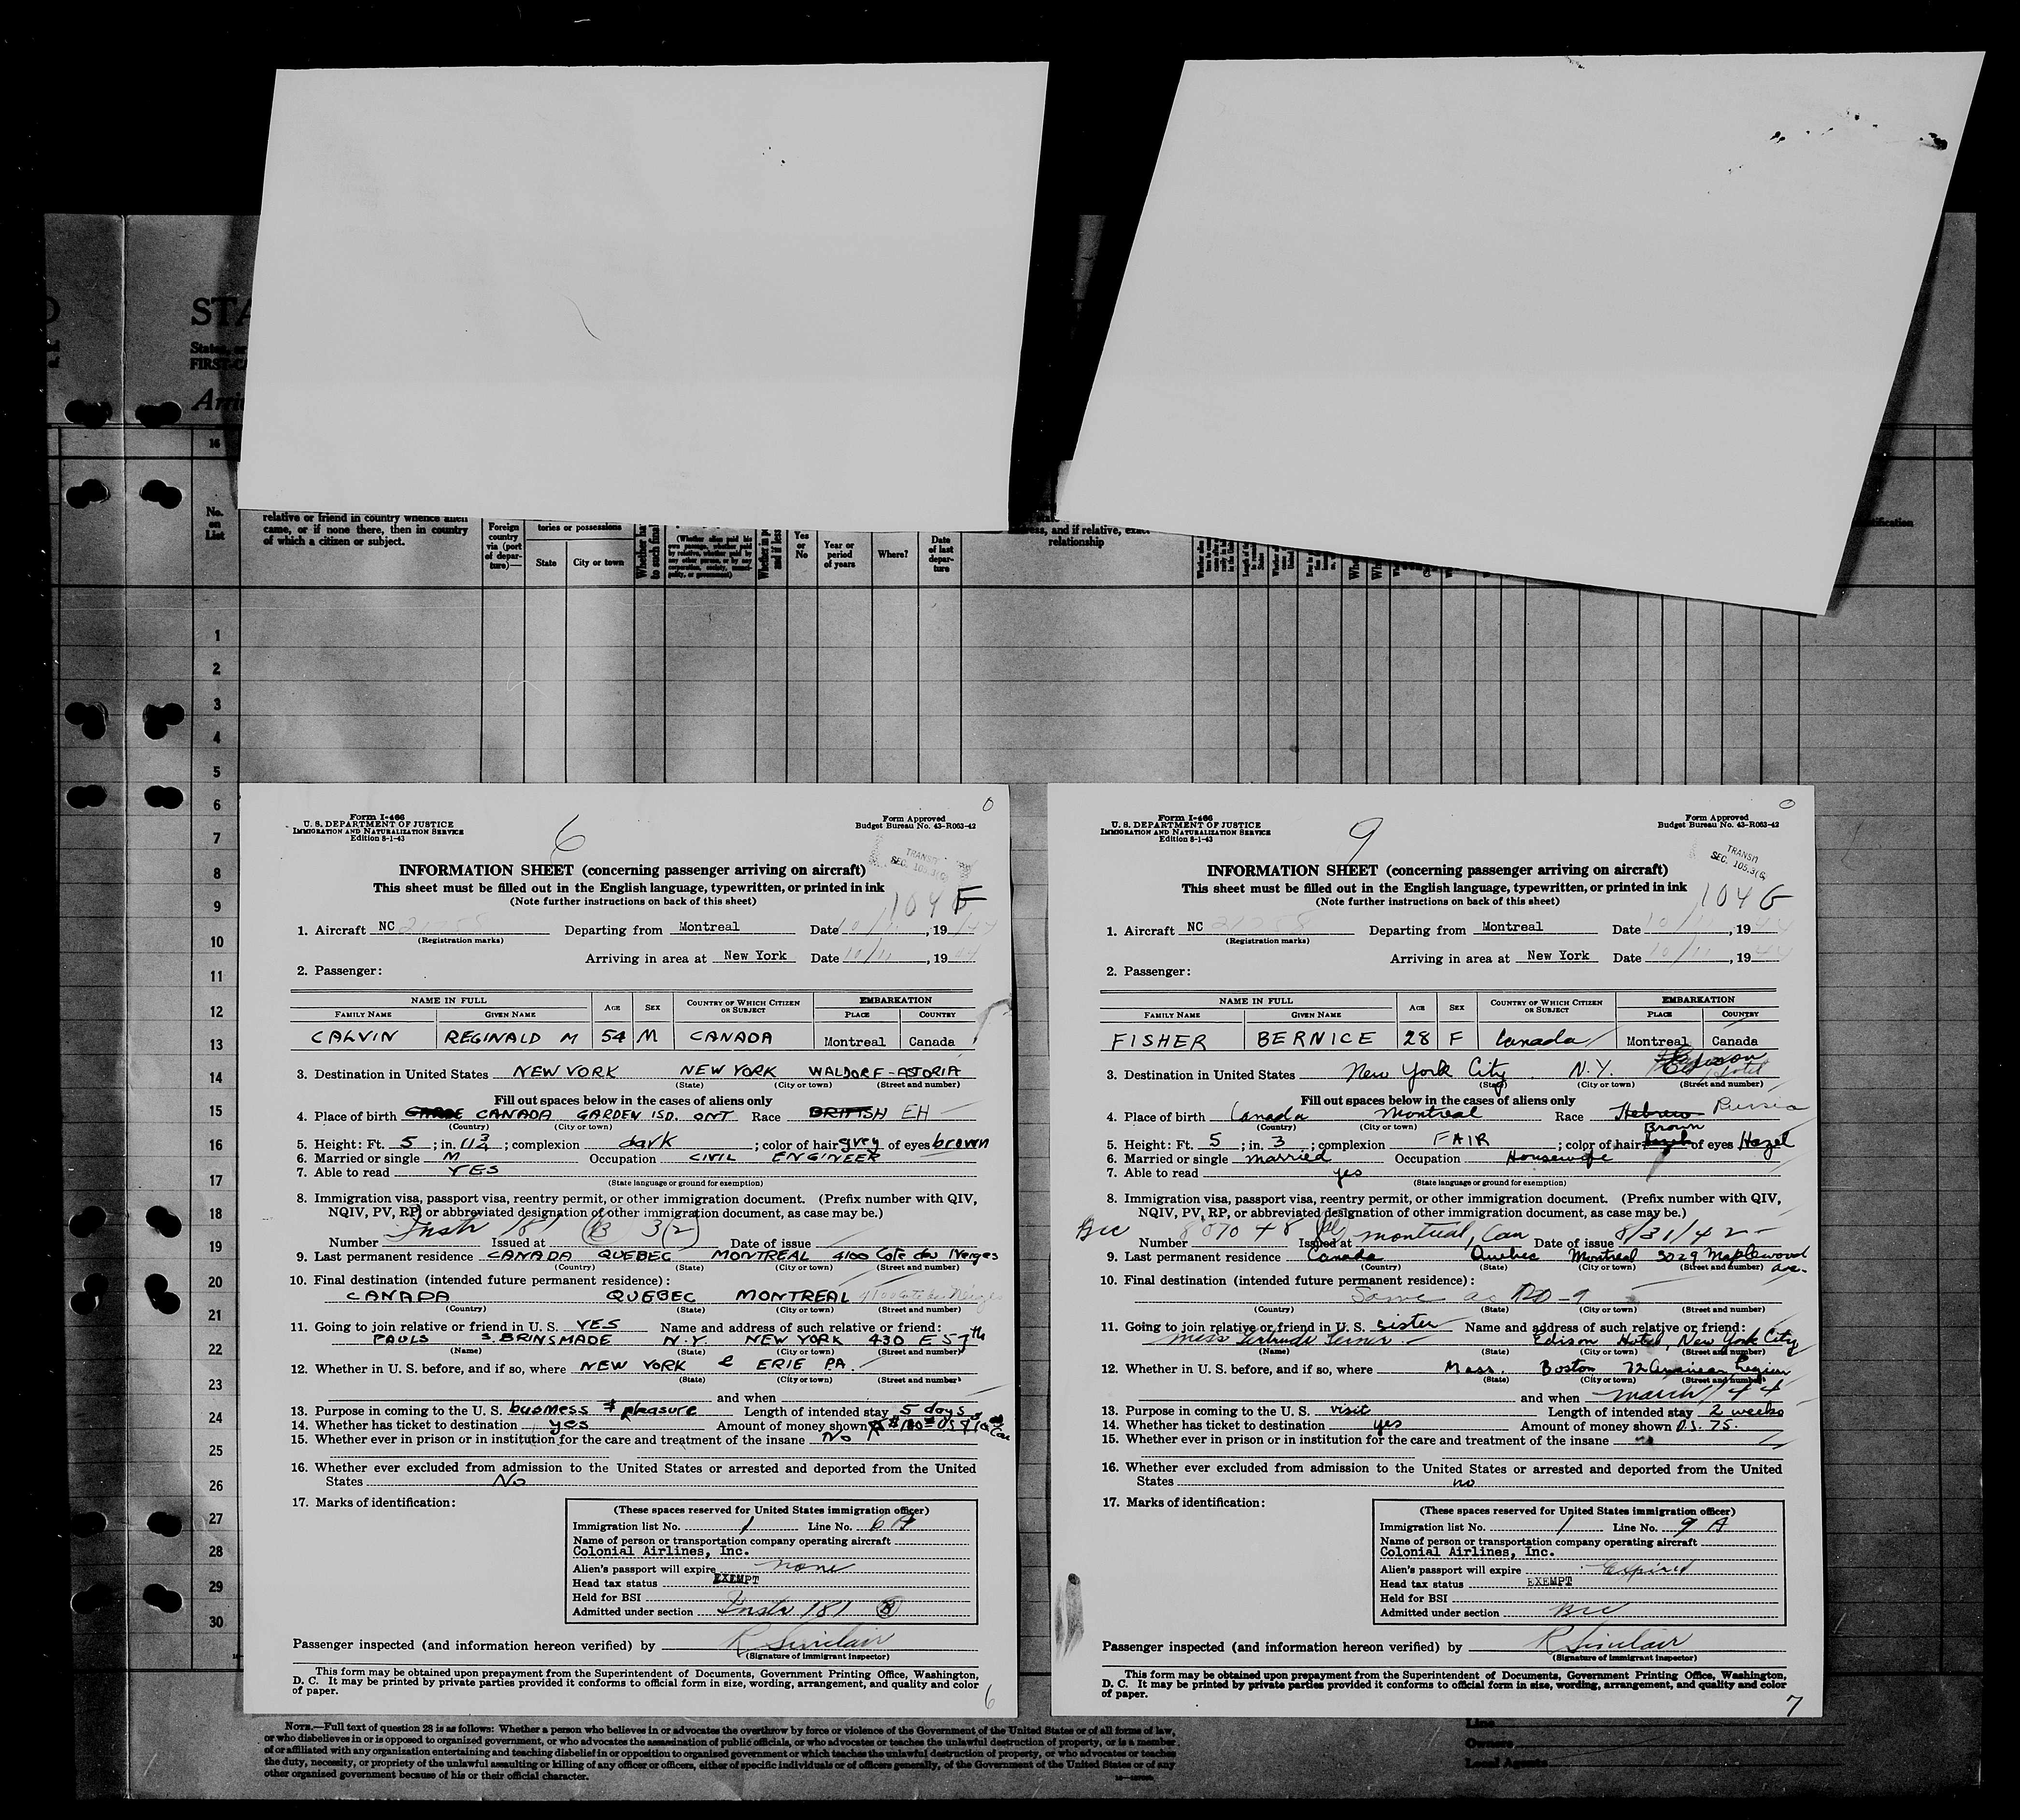 STA
States, or
FIRST-CA
Arri
16
No.
on
List
relative or friend in country whence alien
came, or if none there, then in country
of which a citizen or subject.
Foreign
country
via (port
of depar-
ture)—
tories or possessions
State
City or town
(Whether alien paid his
own passage, whether paid
by relative, whether paid by
any other person, or by any
corporation, society, munici-
pality, or government)
Yes
or
No
Year or
period
of years
Where?
Date
of last
depar-
ture
relationship
1
2
3
4
5
6
7
8
9
10
11
12
13
14
15
16
17
18
19
20
21
22
23
24
25
26
27
28
29
30
0
Form I-466
U. S. DEPARTMENT OF JUSTICE
IMMIGRATION AND NATURALIZATION SERVICE
Edition 8-1-43
6
Form Approved
Budget Bureau No. 43-R063-42
TRANSIT
SEC. 105.3(G)
INFORMATION SHEET (concerning passenger arriving on aircraft)
This sheet must be filled out in the English language, typewritten, or printed in ink
(Note further instructions on back of this sheet)
104 F
1. Aircraft NC 21758 Departing from Montreal Date 10/11, 1944
(Registration marks)
Arriving in area at New York Date 10/11, 1944
2. Passenger:
NAME IN FULL AGE SEX COUNTRY OF WHICH CITIZEN OR SUBJECT EMBARKATION
FAMILY NAME GIVEN NAME PLACE COUNTRY
CALVIN REGINALD M 54 M CANADA Montreal Canada
3. Destination in United States NEW YORK NEW YORK WALDORF-ASTORIA
(State) (City or town) (Street and number)
Fill out spaces below in the cases of aliens only
4. Place of birth CANADA GARDEN ISD. ONT Race BRITISH EH
(Country) (City or town)
5. Height: Ft. 5; in. 11 3/4; complexion dark; color of hair grey of eyes brown
6. Married or single M Occupation CIVIL ENGINEER
7. Able to read YES
(State language or ground for exemption)
8. Immigration visa, passport visa, reentry permit, or other immigration document. (Prefix number with QIV,
NQIV, PV, RP, or abbreviated designation of other immigration document, as case may be.)
Number Instr 181 Issued at (B 3(2) Date of issue
9. Last permanent residence CANADA QUEBEC MONTREAL 4100 Cote des Neiges
(Country) (State) (City or town) (Street and number)
10. Final destination (intended future permanent residence):
CANADA QUEBEC MONTREAL 4100 Cote des Neiges
(Country) (State) (City or town) (Street and number)
11. Going to join relative or friend in U. S. YES Name and address of such relative or friend:
PAULS S. BRINSMADE N.Y. NEW YORK 430 E 57th
(Name) (State) (City or town) (Street and number)
12. Whether in U. S. before, and if so, where NEW YORK & ERIE PA.
(State) (City or town) (Street and number)
and when
13. Purpose in coming to the U. S. business & pleasure Length of intended stay 5 days
14. Whether has ticket to destination yes Amount of money shown
15. Whether ever in prison or in institution for the care and treatment of the insane No
16. Whether ever excluded from admission to the United States or arrested and deported from the United
States No
17. Marks of identification:
(These spaces reserved for United States immigration officer)
Immigration list No. 1 Line No. 6 A
Name of person or transportation company operating aircraft
Colonial Airlines, Inc.
Alien's passport will expire none
Head tax status EXEMPT
Held for BSI
Admitted under section Instr 181 (B)
Passenger inspected (and information hereon verified) by R Sinclair
(Signature of immigrant inspector)
This form may be obtained upon prepayment from the Superintendent of Documents, Government Printing Office, Washington,
D. C. It may be printed by private parties provided it conforms to official form in size, wording, arrangement, and quality and color
of paper.
6
0
Form I-466
U. S. DEPARTMENT OF JUSTICE
IMMIGRATION AND NATURALIZATION SERVICE
Edition 8-1-43
9
Form Approved
Budget Bureau No. 43-R063-42
TRANSIT
SEC. 105.3(G)
INFORMATION SHEET (concerning passenger arriving on aircraft)
This sheet must be filled out in the English language, typewritten, or printed in ink
(Note further instructions on back of this sheet)
104 G
1. Aircraft NC 21758 Departing from Montreal Date 10/11, 1944
(Registration marks)
Arriving in area at New York Date 10/11, 1944
2. Passenger:
NAME IN FULL AGE SEX COUNTRY OF WHICH CITIZEN OR SUBJECT EMBARKATION
FAMILY NAME GIVEN NAME PLACE COUNTRY
FISHER BERNICE 28 F Canada Montreal Canada
3. Destination in United States New York City N.Y. Edison Hotel
(State) (City or town) (Street and number)
Fill out spaces below in the cases of aliens only
4. Place of birth Canada Montreal Race Hebrew Russia
(Country) (City or town)
5. Height: Ft. 5; in. 3; complexion FAIR; color of hair Brown of eyes Hazel
6. Married or single married Occupation Housewife
7. Able to read yes
(State language or ground for exemption)
8. Immigration visa, passport visa, reentry permit, or other immigration document. (Prefix number with QIV,
NQIV, PV, RP, or abbreviated designation of other immigration document, as case may be.)
BCC Number 807048 Issued at Montreal, Can Date of issue 8/31/42
9. Last permanent residence Canada Quebec Montreal 3029 Maplewood ave.
(Country) (State) (City or town) (Street and number)
10. Final destination (intended future permanent residence):
Same as no-9
(Country) (State) (City or town) (Street and number)
11. Going to join relative or friend in U. S. sister Name and address of such relative or friend:
Miss Gertrude Edison Hotel, New York City
(Name) (State) (City or town) (Street and number)
12. Whether in U. S. before, and if so, where Mass. Boston 72 American Legion
(State) (City or town) (Street and number)
and when March / 44
13. Purpose in coming to the U. S. visit Length of intended stay 2 weeks
14. Whether has ticket to destination yes Amount of money shown U.S. 75.
15. Whether ever in prison or in institution for the care and treatment of the insane no
16. Whether ever excluded from admission to the United States or arrested and deported from the United
States no
17. Marks of identification:
(These spaces reserved for United States immigration officer)
Immigration list No. 1 Line No. 9 A
Name of person or transportation company operating aircraft
Colonial Airlines, Inc.
Alien's passport will expire Expired
Head tax status EXEMPT
Held for BSI
Admitted under section BCC
Passenger inspected (and information hereon verified) by R Sinclair
(Signature of immigrant inspector)
This form may be obtained upon prepayment from the Superintendent of Documents, Government Printing Office, Washington,
D. C. It may be printed by private parties provided it conforms to official form in size, wording, arrangement, and quality and color
of paper.
7
NOTE.—Full text of question 28 is as follows: Whether a person who believes in or advocates the overthrow by force or violence of the Government of the United States or of all forms of law,
or who disbelieves in or is opposed to organized government, or who advocates the assassination of public officials, or who advocates or teaches the unlawful destruction of property, or is a member
of or affiliated with any organization entertaining and teaching disbelief in or opposition to organized government or which teaches the unlawful destruction of property, or who advocates or teaches
the duty, necessity, or propriety of the unlawful assaulting or killing of any officer or officers, either of specific individuals or of officers generally, of the Government of the United States or of any
other organized government because of his or their official character.
Line
Owners
Local Agents